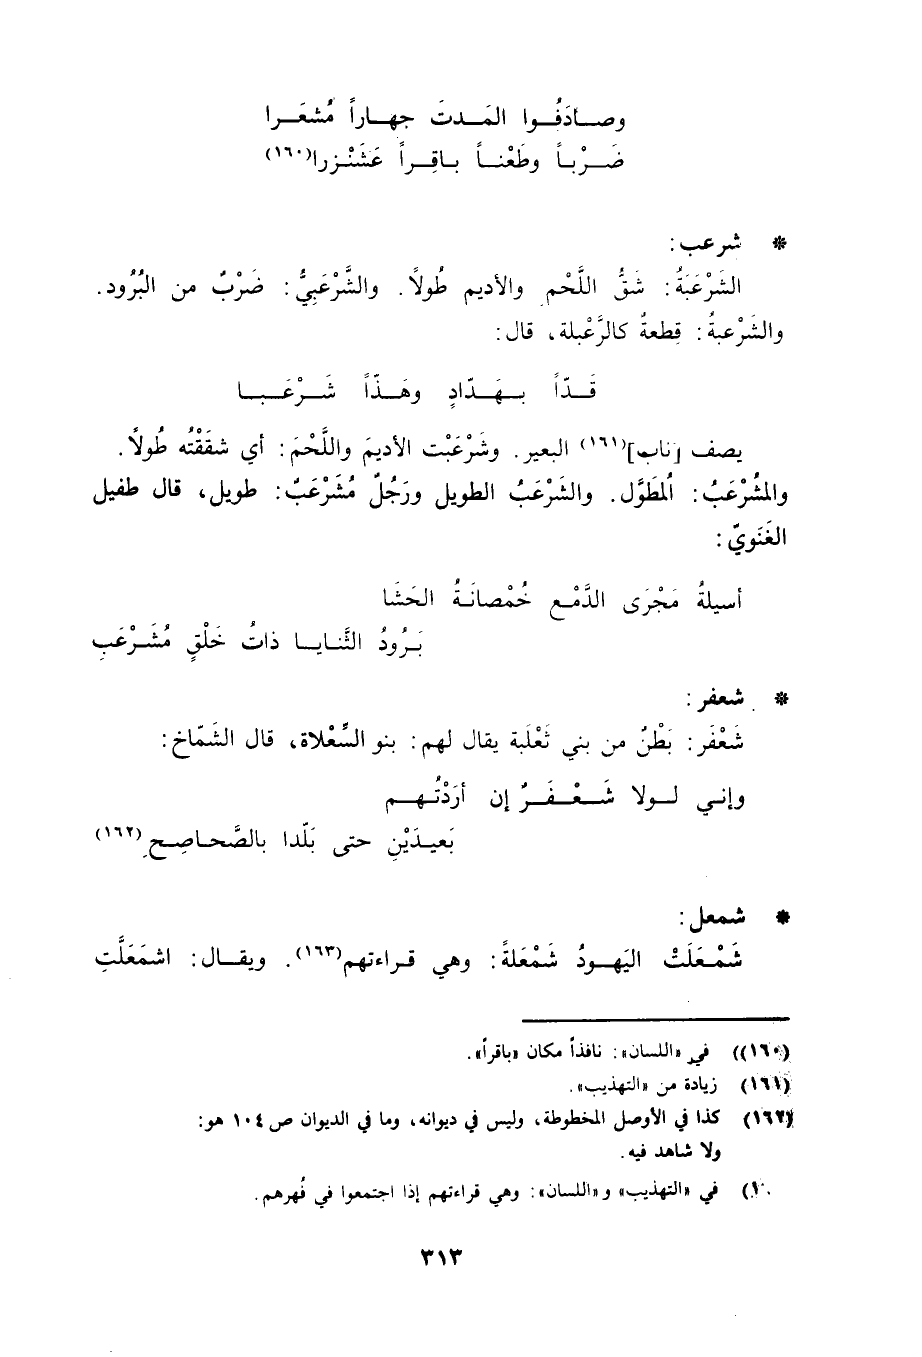 وصـادَفُـوا المَـدتَ جهـاراً مُشعَـرا
ضَـرْبـاً وطَعْنـاً بـاقِـراً عَشَنْـزرا(١٦٠)
* شرعب:
الشَرْعَبَةُ: شَقُّ اللَّحْم والأديم طُولاً. والشَّرْعَبِيُّ: ضَرْبٌ من البُرُود.
والشَرْعبةُ: قِطعةٌ كالرَّعْبلة، قال:
قَـدّاً بـهَـدّادٍ وهَـذّاً شَـرْعَـبـا
يصف [ناب](١٦١) البعير. وشَرْعَبْت الأديمَ واللَّحْمَ: أي شقَقْتُه طُولاً.
والمُشْرْعَبُ: اُلمطَوَّل. والشَرْعَبُ الطويل ورَجُلٌ مُشَرْعَبٌ: طويل، قال طفيل
الغَنَويّ:
أسيلةُ مَجْرَى الدَّمْـع خُمْصانَـةُ الحَشَا
بَـرُودُ الثَّنايـا ذاتُ خَلْقٍ مُشَـرْعَبِ
* شعفر:
شَعْفَر: بَطْنٌ من بني ثَعْلَبة يقال لهم: بنو السِّعْلاة، قال الشَمّاخ:
وإنـي لـولا شَـعْـفَـرٌ إن أرَدْتُـهـم
بَعيـدَيْنِ حتى بَلّدا بالصَّحـاصِـح(١٦٢)
* شمعل:
شَمْـعَلَتْ اليَهـودُ شَمْعَلةً: وهي قـراءتهم(١٦٣). ويقـال: اشمَعَلَّتِ
(١٦٠)) في «اللسان»: نافذاً مكان «باقراً».
(١٦١) زيادة من «التهذيب».
(١٦٢) كذا في الأوصل المخطوطة، وليس في ديوانه، وما في الديوان ص ١٠٤ هو:
ولا شاهد فيه.
في «التهذيب» و«اللسان»: وهي قراءتهم إذا اجتمعوا في فُهرهم.
٣١٣